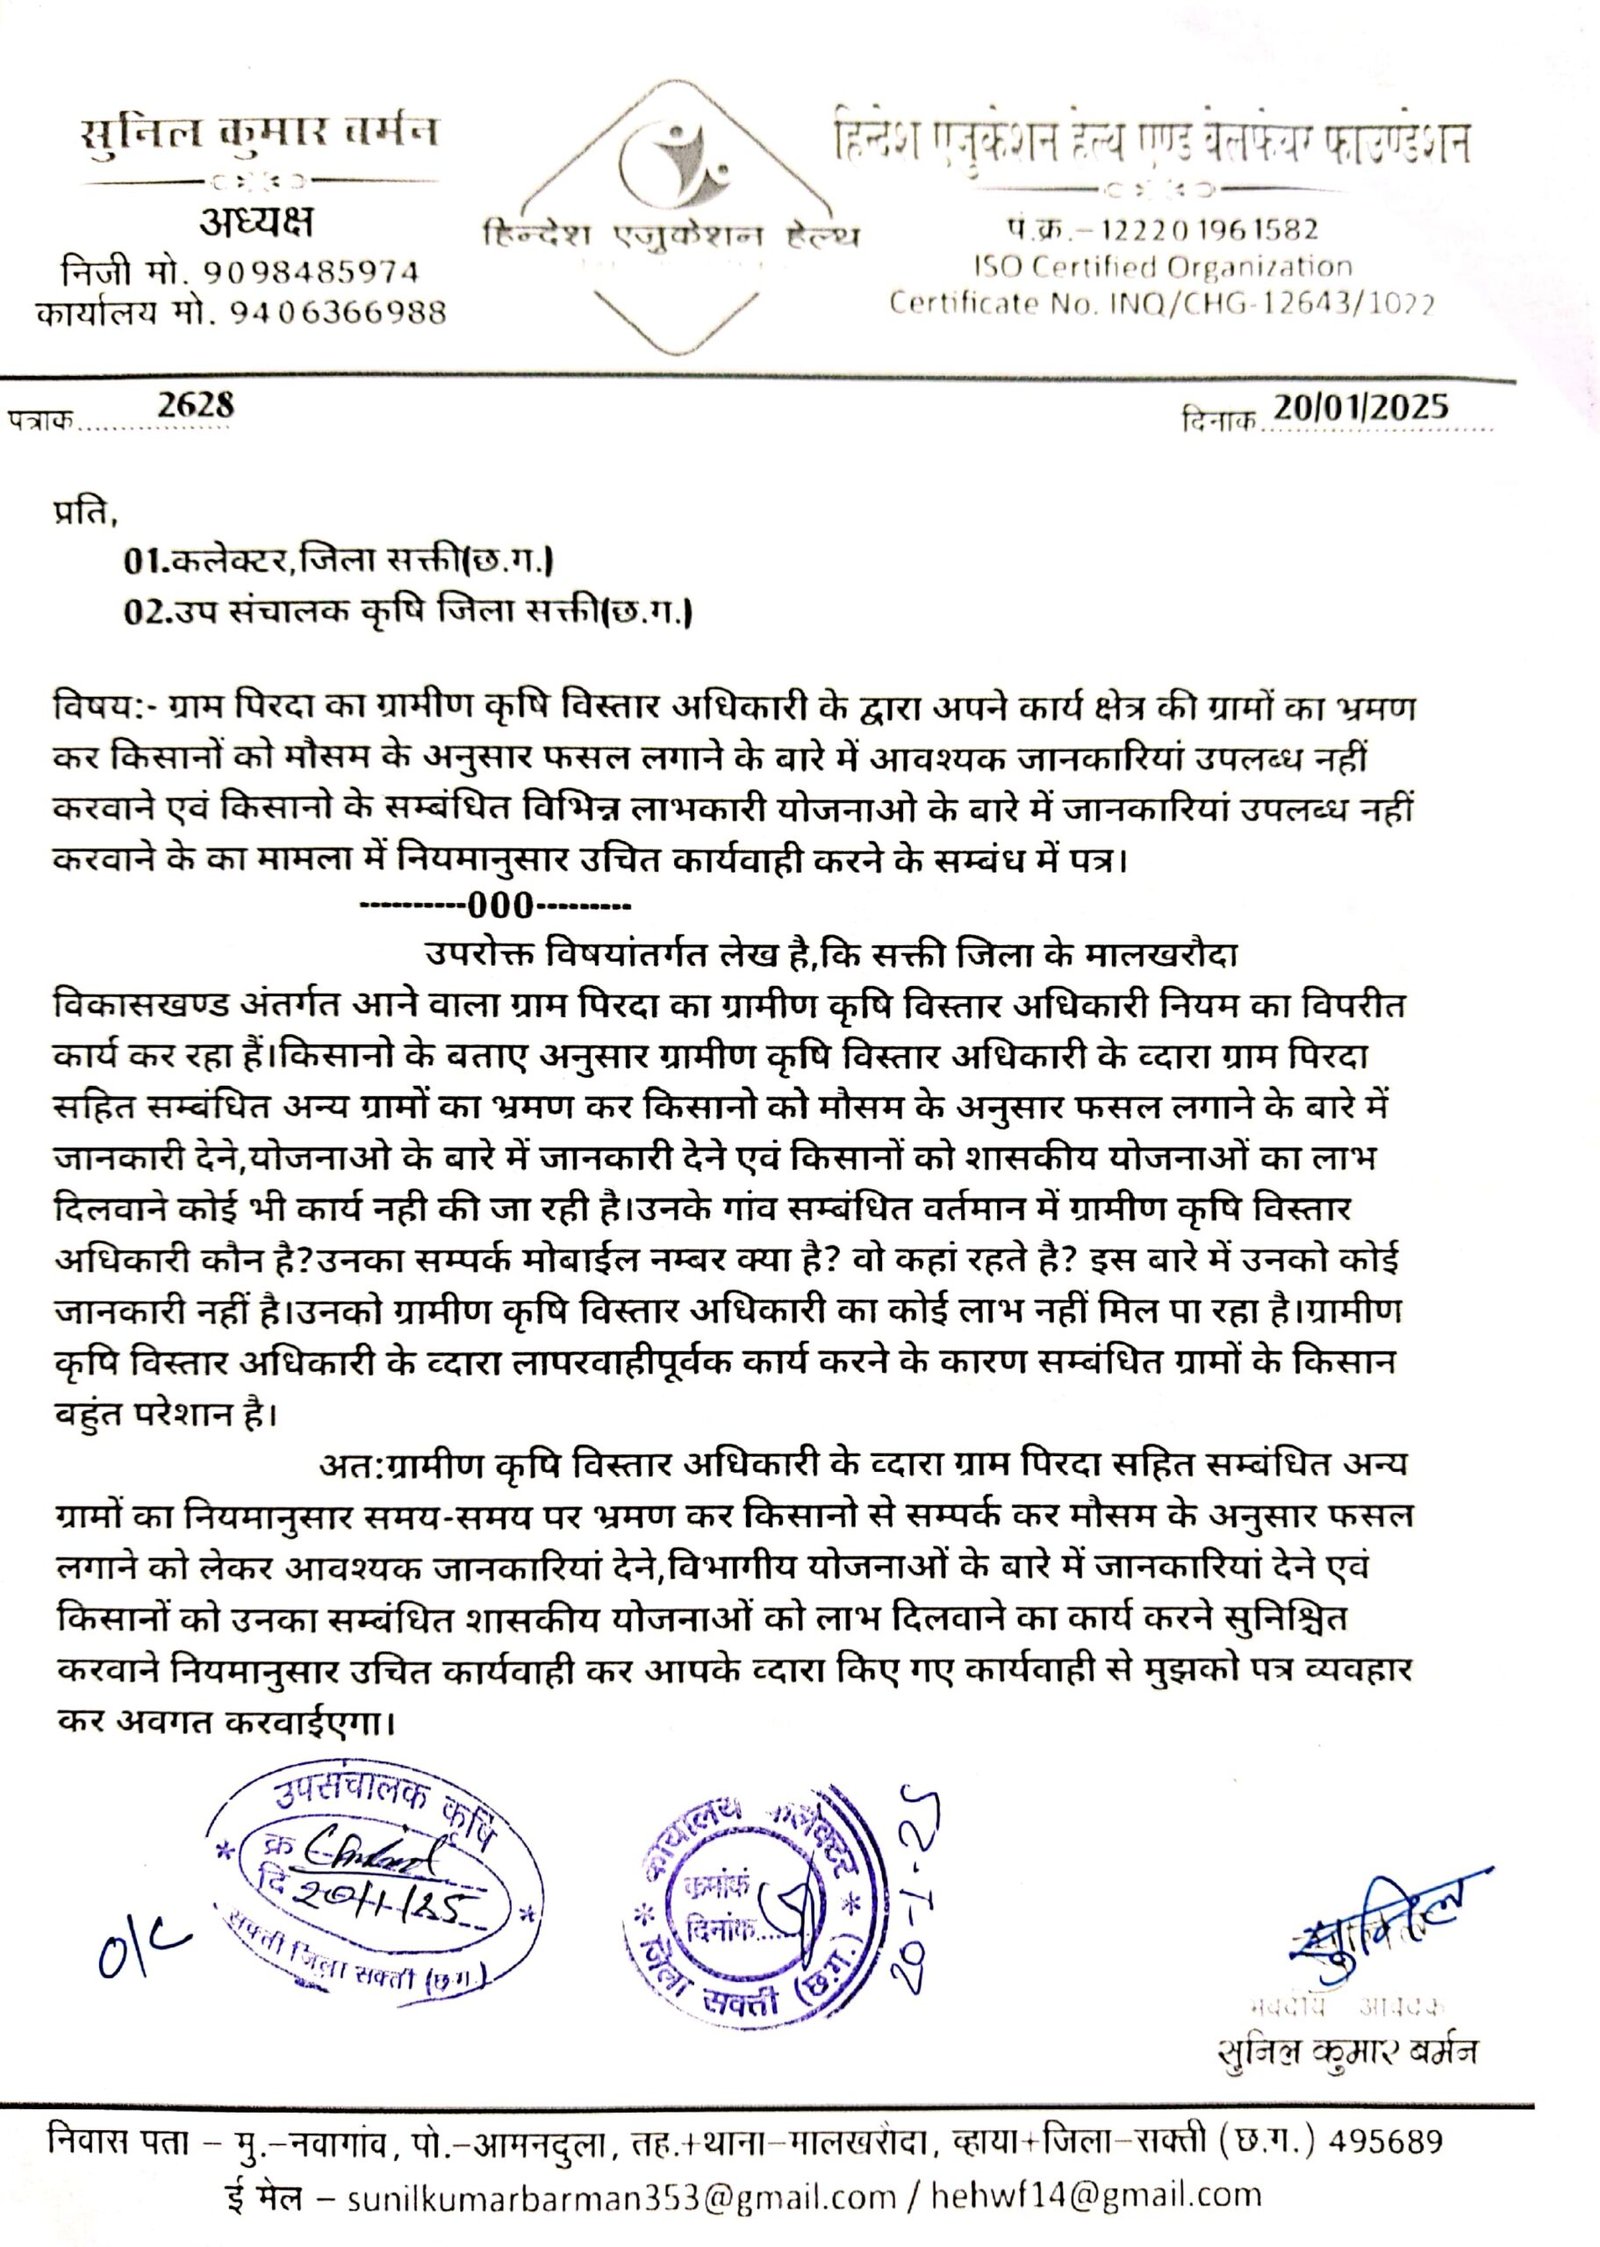 सुनिल कुमार बर्मन
अध्यक्ष
निजी मो. 9098485974
कार्यालय मो. 9406366988
हिन्देश एजुकेशन हेल्थ
हिन्देश एजुकेशन हेल्थ एण्ड वेलफेयर फाउण्डेशन
पं.क्र.– 122201961582
ISO Certified Organization
Certificate No. INQ/CHG-12643/1022
पत्राक.......2628
दिनाक 20/01/2025
प्रति,
01.कलेक्टर,जिला सक्ती(छ.ग.)
02.उप संचालक कृषि जिला सक्ती(छ.ग.)
विषय:- ग्राम पिरदा का ग्रामीण कृषि विस्तार अधिकारी के द्वारा अपने कार्य क्षेत्र की ग्रामों का भ्रमण
कर किसानों को मौसम के अनुसार फसल लगाने के बारे में आवश्यक जानकारियां उपलब्ध नहीं
करवाने एवं किसानो के सम्बंधित विभिन्न लाभकारी योजनाओ के बारे में जानकारियां उपलब्ध नहीं
करवाने के का मामला में नियमानुसार उचित कार्यवाही करने के सम्बंध में पत्र।
----------000---------
उपरोक्त विषयांतर्गत लेख है,कि सक्ती जिला के मालखरौदा
विकासखण्ड अंतर्गत आने वाला ग्राम पिरदा का ग्रामीण कृषि विस्तार अधिकारी नियम का विपरीत
कार्य कर रहा हैं।किसानो के बताए अनुसार ग्रामीण कृषि विस्तार अधिकारी के व्दारा ग्राम पिरदा
सहित सम्बंधित अन्य ग्रामों का भ्रमण कर किसानो को मौसम के अनुसार फसल लगाने के बारे में
जानकारी देने,योजनाओ के बारे में जानकारी देने एवं किसानों को शासकीय योजनाओं का लाभ
दिलवाने कोई भी कार्य नही की जा रही है।उनके गांव सम्बंधित वर्तमान में ग्रामीण कृषि विस्तार
अधिकारी कौन है?उनका सम्पर्क मोबाईल नम्बर क्या है? वो कहां रहते है? इस बारे में उनको कोई
जानकारी नहीं है।उनको ग्रामीण कृषि विस्तार अधिकारी का कोई लाभ नहीं मिल पा रहा है।ग्रामीण
कृषि विस्तार अधिकारी के व्दारा लापरवाहीपूर्वक कार्य करने के कारण सम्बंधित ग्रामों के किसान
बहुंत परेशान है।
अत:ग्रामीण कृषि विस्तार अधिकारी के व्दारा ग्राम पिरदा सहित सम्बंधित अन्य
ग्रामों का नियमानुसार समय-समय पर भ्रमण कर किसानो से सम्पर्क कर मौसम के अनुसार फसल
लगाने को लेकर आवश्यक जानकारियां देने,विभागीय योजनाओं के बारे में जानकारियां देने एवं
किसानों को उनका सम्बंधित शासकीय योजनाओं को लाभ दिलवाने का कार्य करने सुनिश्चित
करवाने नियमानुसार उचित कार्यवाही कर आपके व्दारा किए गए कार्यवाही से मुझको पत्र व्यवहार
कर अवगत करवाईएगा।
उपसंचालक कृषि
क्र
दि 20/1/25
सक्ती जिला सक्ती (छ.ग.)
O/C
कार्यालय कलेक्टर
क्रमांक
दिनांक
जिला सक्ती (छ.ग.)
20-1-25
सुनिल
भवदीय आवेदक
सुनिल कुमार बर्मन
निवास पता – मु.–नवागांव, पो.–आमनदुला, तह.+थाना–मालखरौदा, व्हाया+जिला–सक्ती (छ.ग.) 495689
ई मेल – sunilkumarbarman353@gmail.com / hehwf14@gmail.com